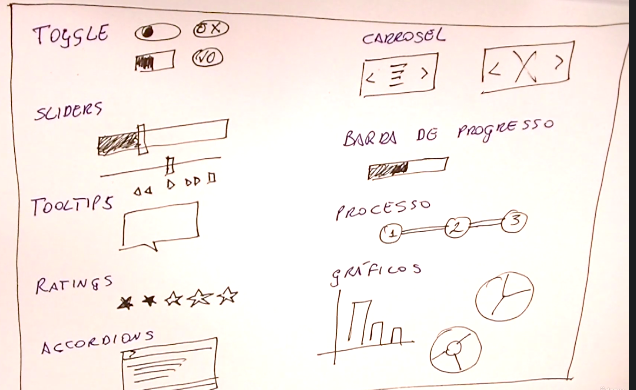 TOGGLE
OK
NO
SLIDERS
TOOLTIPS
RATINGS
ACCORDIONS
CARROSEL
BARRA DE PROGRESSO
PROCESSO
1 2 3
GRÁFICOS